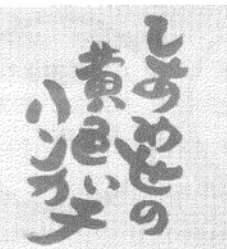 しあわせの
黄色い
ハンカチ